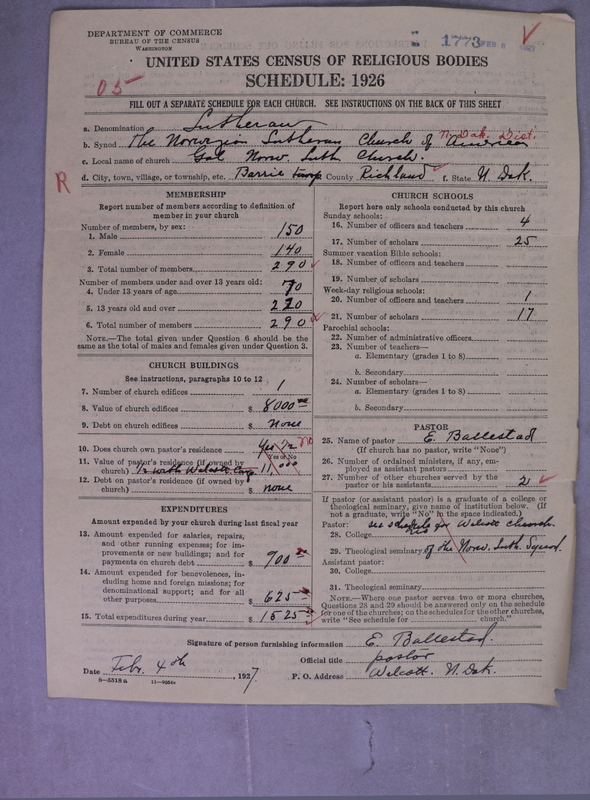 DEPARTMENT OF COMMERCE
BUREAU OF THE CENSUS
WASHINGTON
1773 FEB 8 1927
UNITED STATES CENSUS OF RELIGIOUS BODIES
SCHEDULE: 1926
05
FILL OUT A SEPARATE SCHEDULE FOR EACH CHURCH. SEE INSTRUCTIONS ON THE BACK OF THIS SHEET
a. Denomination Lutheran
b. Synod The Norwegian Lutheran Church of America N. Dak. Dist.
c. Local name of church Gol Norw. Luth Church.
R
d. City, town, village, or township, etc. Barrie twp County Richland f. State N. Dak.
MEMBERSHIP
Report number of members according to definition of
member in your church
Number of members, by sex:
1. Male 150
2. Female 140
3. Total number of members 290
Number of members under and over 13 years old:
4. Under 13 years of age 70
5. 13 years old and over 220
6. Total number of members 290
NOTE.—The total given under Question 6 should be the
same as the total of males and females given under Question 3.
CHURCH BUILDINGS
See instructions, paragraphs 10 to 12
7. Number of church edifices 1
8. Value of church edifices $ 8000 00
9. Debt on church edifices $ none
10. Does church own pastor's residence Yes 1/2 no
Yes or No
11. Value of pastor's residence (if owned by
church) 1/2 with Walcott Cong.
12. Debt on pastor's residence (if owned by
church) $ none
EXPENDITURES
Amount expended by your church during last fiscal year
13. Amount expended for salaries, repairs,
and other running expenses; for im-
provements or new buildings; and for
payments on church debt $ 900
14. Amount expended for benevolences, in-
cluding home and foreign missions; for
denominational support; and for all
other purposes $ 625
15. Total expenditures during year $ 1525
CHURCH SCHOOLS
Report here only schools conducted by this church
Sunday schools:
16. Number of officers and teachers 4
17. Number of scholars 25
Summer vacation Bible schools:
18. Number of officers and teachers
19. Number of scholars
Week-day religious schools:
20. Number of officers and teachers 1
21. Number of scholars 17
Parochial schools:
22. Number of administrative officers
23. Number of teachers—
a. Elementary (grades 1 to 8)
b. Secondary
24. Number of scholars—
a. Elementary (grades 1 to 8)
b. Secondary
PASTOR
25. Name of pastor E. Ballestad
(If church has no pastor, write "None")
26. Number of ordained ministers, if any, em-
ployed as assistant pastors
27. Number of other churches served by the
pastor or his assistants 2
If pastor (or assistant pastor) is a graduate of a college or
theological seminary, give name of institution below. (If
not a graduate, write "No" in the space indicated.)
Pastor: see schedule for Walcott Church.
28. College
29. Theological seminary of the Norw. Luth. Synod.
Assistant pastor:
30. College
31. Theological seminary
NOTE.—Where one pastor serves two or more churches,
Questions 28 and 29 should be answered only on the schedule
for one of the churches; on the schedules for the other churches,
write "See schedule for church."
Signature of person furnishing information E. Ballestad.
Official title pastor
Date Febr. 4th, 1927
P. O. Address Walcott. N. Dak.
8—5518 a